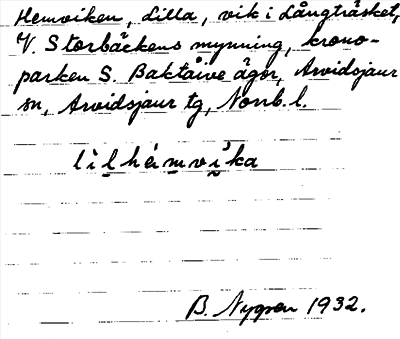 Hemviken, Lilla, vik i Långträsket,
V. Storbäckens mynning, krono-
parken S. Baktåive ägor, Arvidsjaur
sn, Arvidsjaur tg, Norrb. l.
lìl héimvi̯ka
B. Nygren 1932.